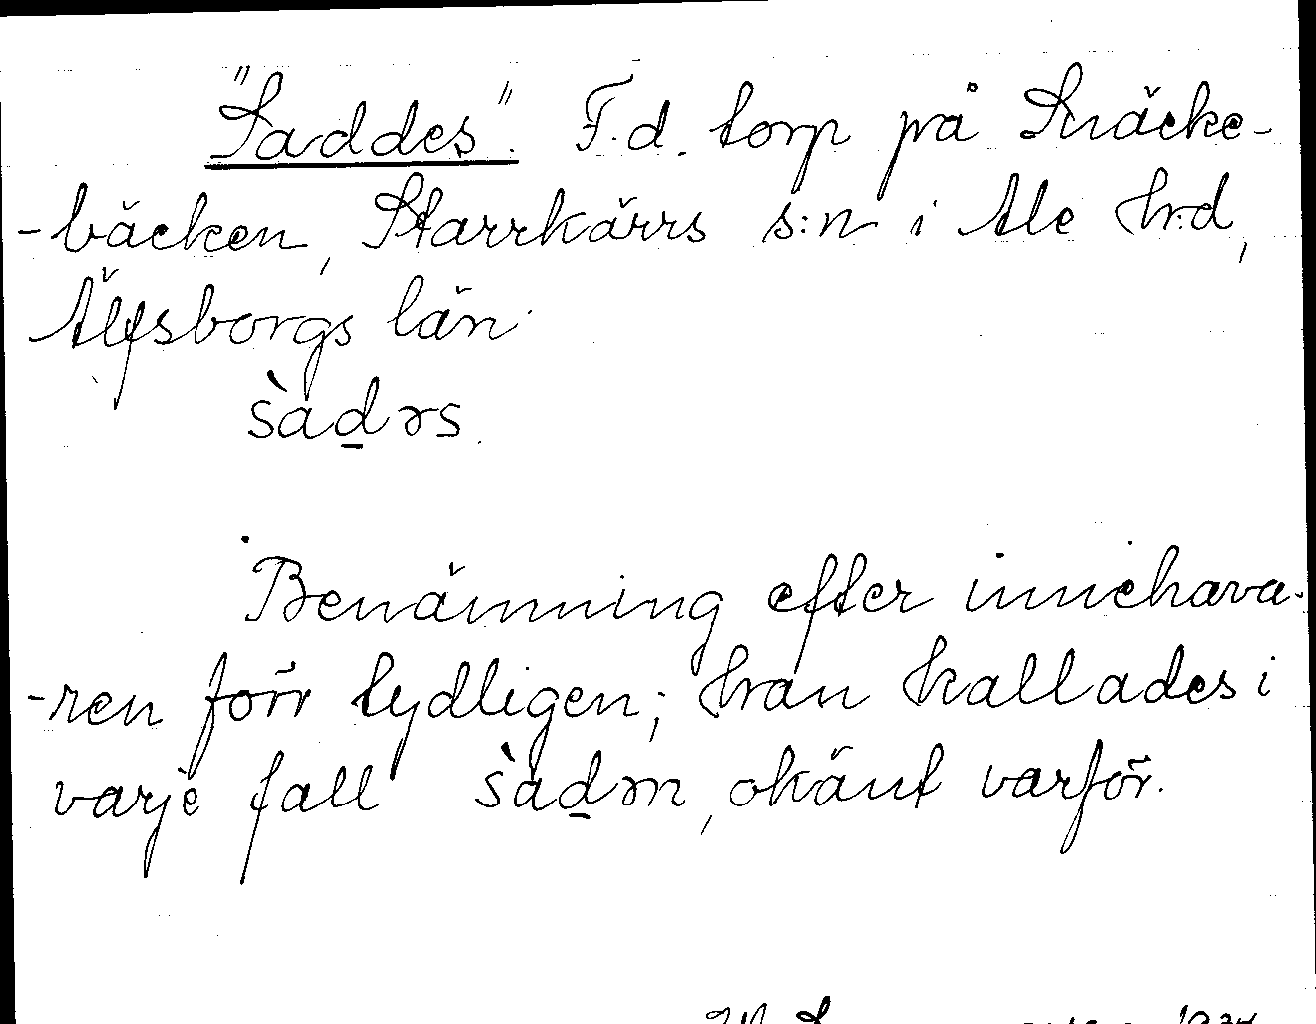 "Saddes". F.d. torp på Snäcke-
-bäcken, Starrkärrs s:n i Ale hr:d,
Älfsborgs län.
sàd̲əs.
Benämning efter innehava-
-ren förr tydligen; han kallades i
varje fall sàd̲ən, okänt varför.